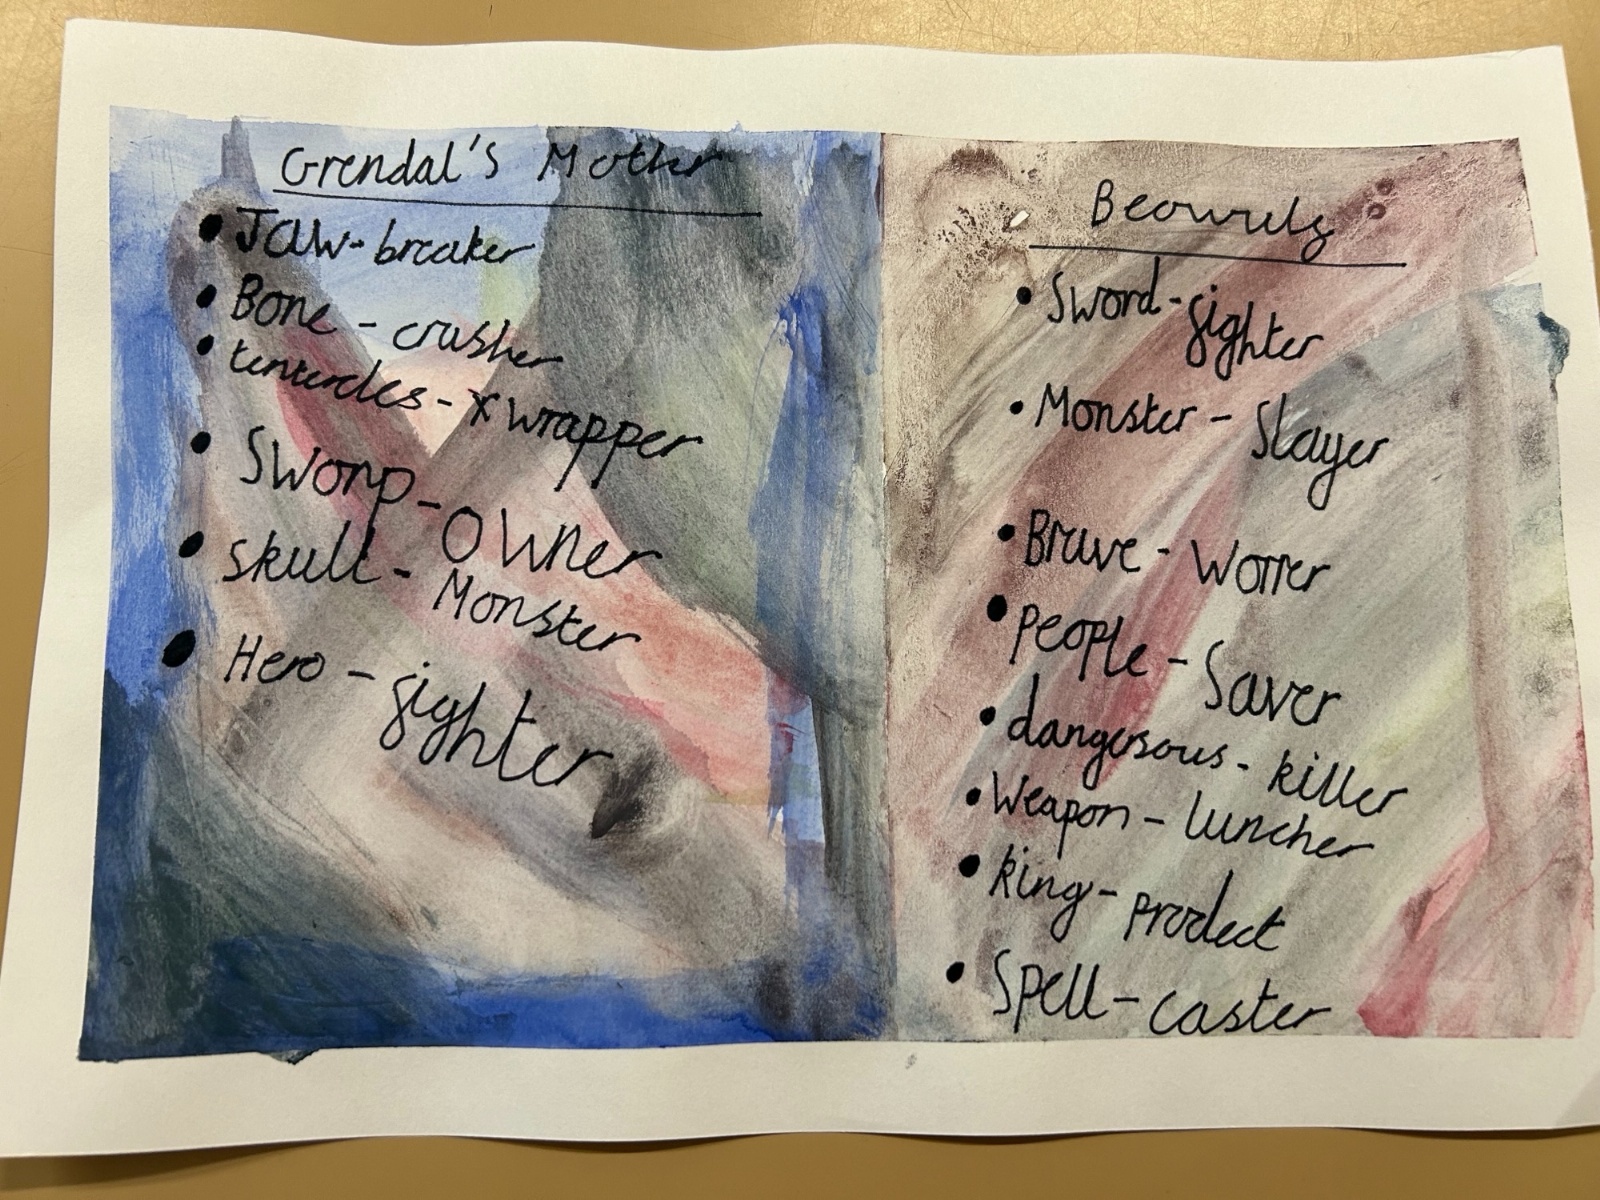 Grendal's Mother
• Jaw-breaker
• Bone - crusher
• tentercles - wrapper
• Sword - owner
• skull - Monster
• Hero - fighter
Beowulf
• Sword - fighter
• Monster - Slayer
• Brave - Worrer
• People - Saver
• dangersous - killer
• Weapon - luncher
• king - prodect
• Spell - caster